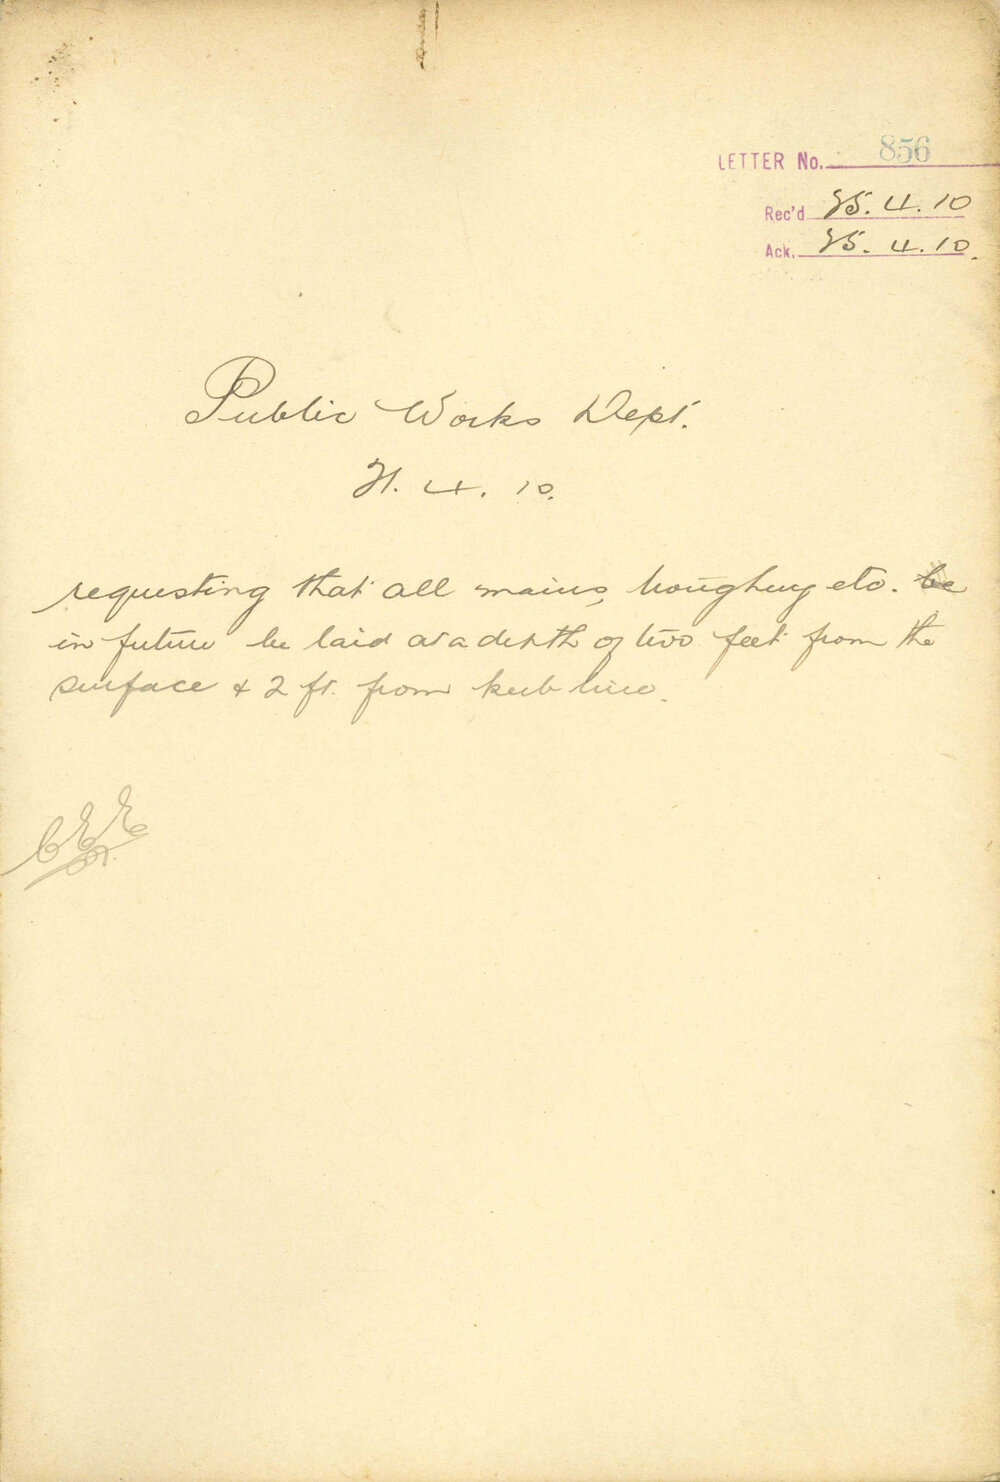 LETTER No. 856
Rec'd 25.4.10
Ack. 25.4.10.
Public Works Dept.
21.4.10.
requesting that all mains, troughing etc. be
in future be laid at a depth of two feet from the
surface & 2 ft. from kerb line.
CEE